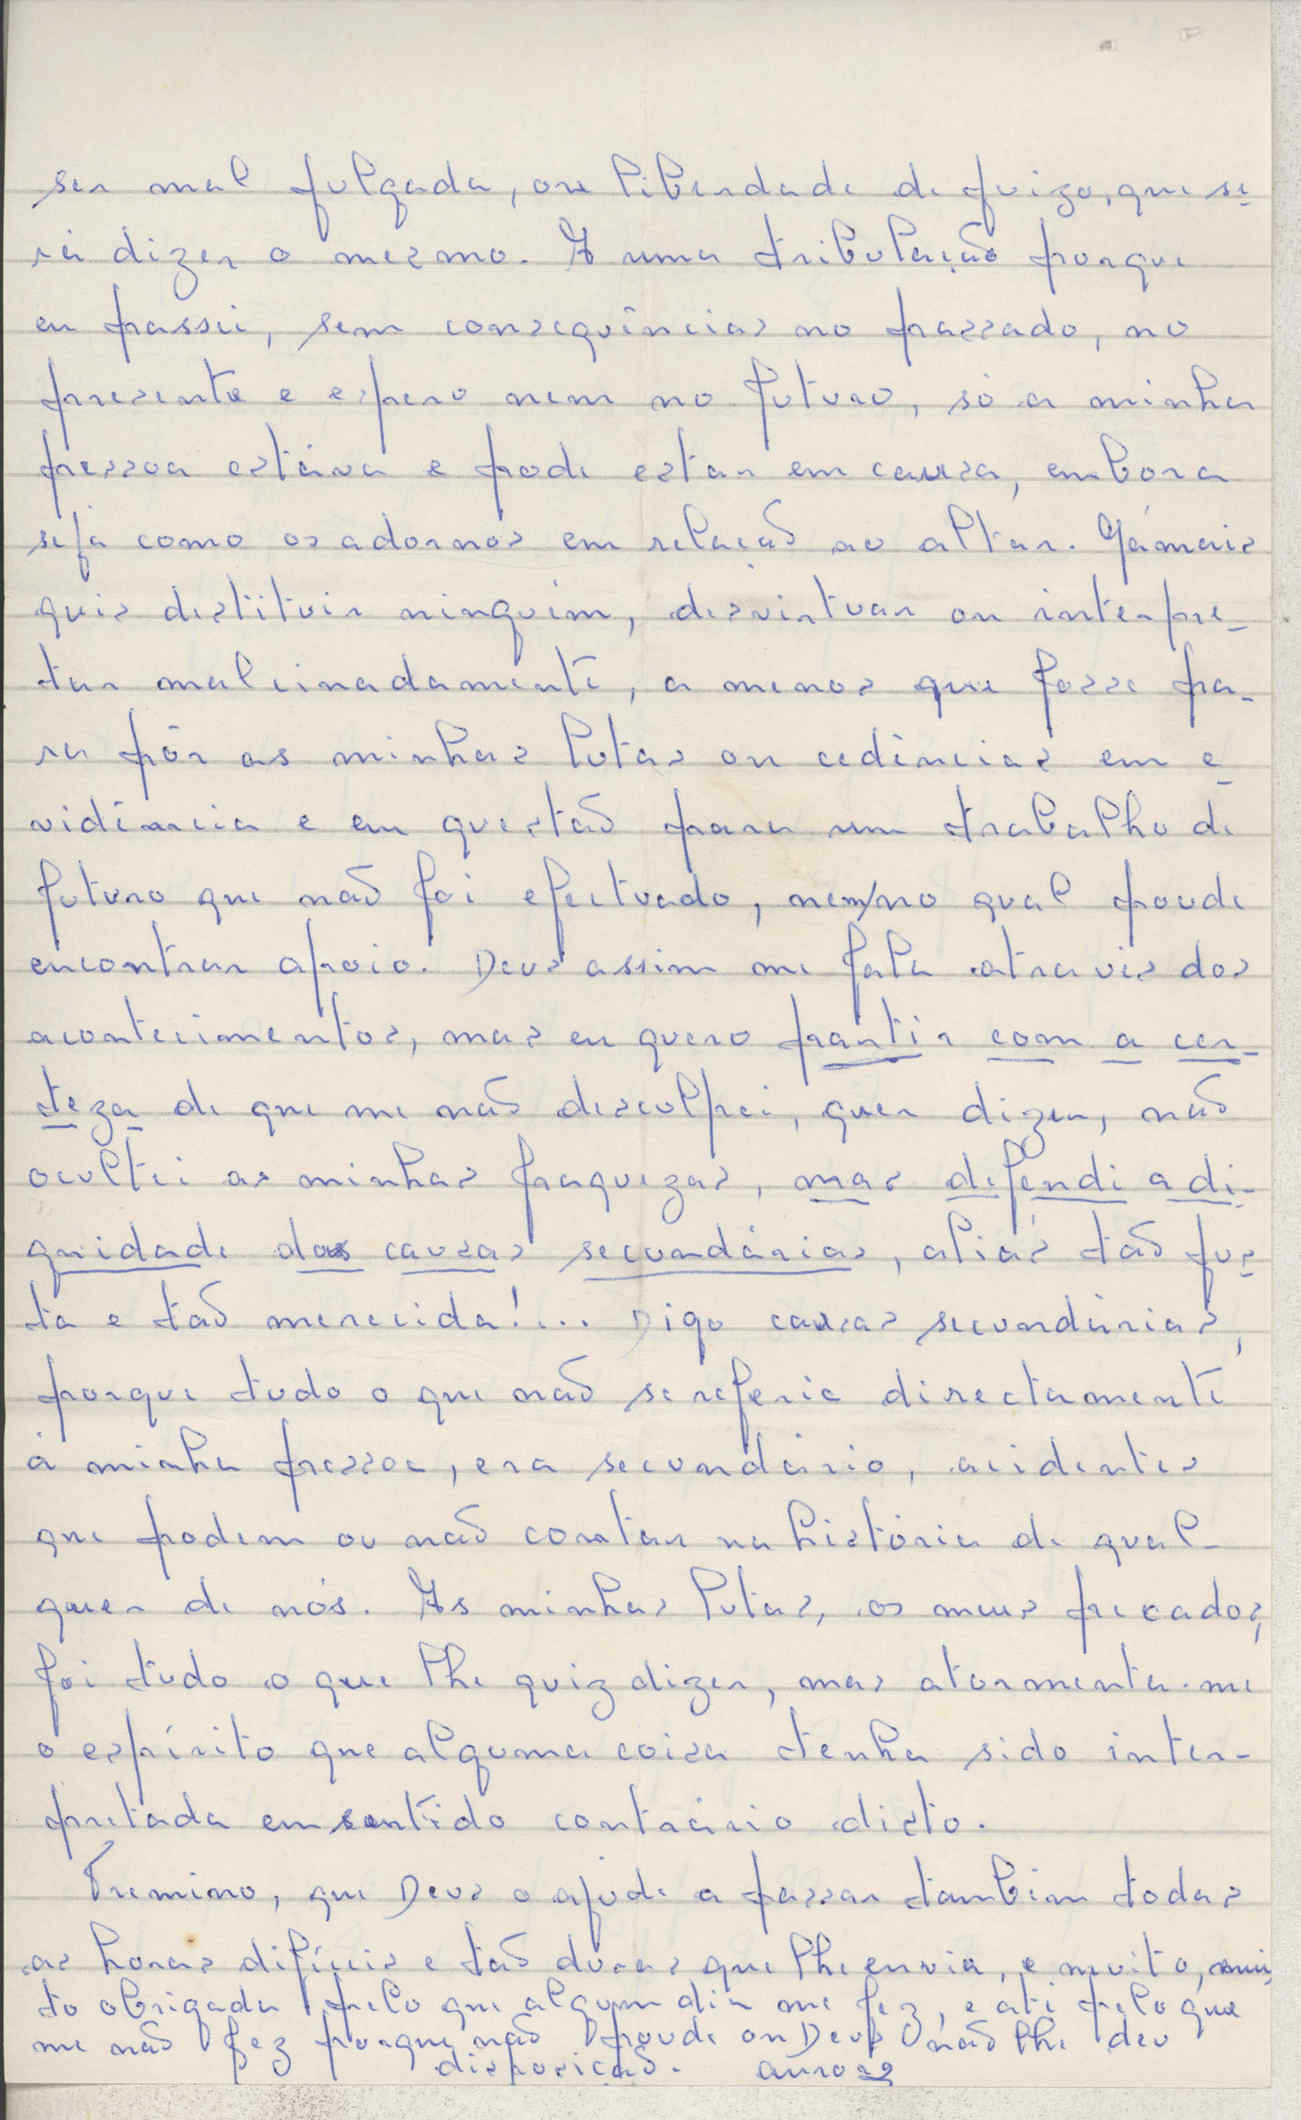 ser mal julgada, ou liberdade de juizo, que se-
rá dizer o mesmo. É uma tribulação porque
eu passei, sem consequências no passado, no
presente e espero nem no futuro, só a minha
pessoa estáva e pode estar em causa, embora
seja como os adornos em relação ao altar. Jámais
quis destituir ninguém, desvirtuar ou interpre-
tar malsinadamente, a menos que fosse pa-
ra pôr as minhas lutas ou cedências em e-
vidência e em questão para um trabalho de
futuro que não foi efectuado, nem/no qual poude
encontrar apoio. Deus assim me fala através dos
acontecimentos, mas eu quero partir com a cer-
teza de que me não desculpei, quer dizer, não
ocultei as minhas fraquezas, mas defendi a di-
gnidade das causas secundárias, aliás tão jus-
ta e tão merecida!... Digo causas secundárias,
porque tudo o que não se referia directamente
á minha pessoa, era secundário, acidentes
que podem ou não contar na história de qual-
quer de nós. As minhas lutas, os meus pecados,
foi tudo o que lhe quiz dizer, mas atormenta-me
o espírito que alguma coisa tenha sido inter-
pretada em sentido contrário disto.
Tremino, que Deus o ajude a passar também todas
as horas difíceis e tão duras que lhe envia, e muito, mui-
to obrigada pelo que algum dia me fez, e até pelo que
me não fez porque não poude ou Deus não lhe deu
disposição. Aurora